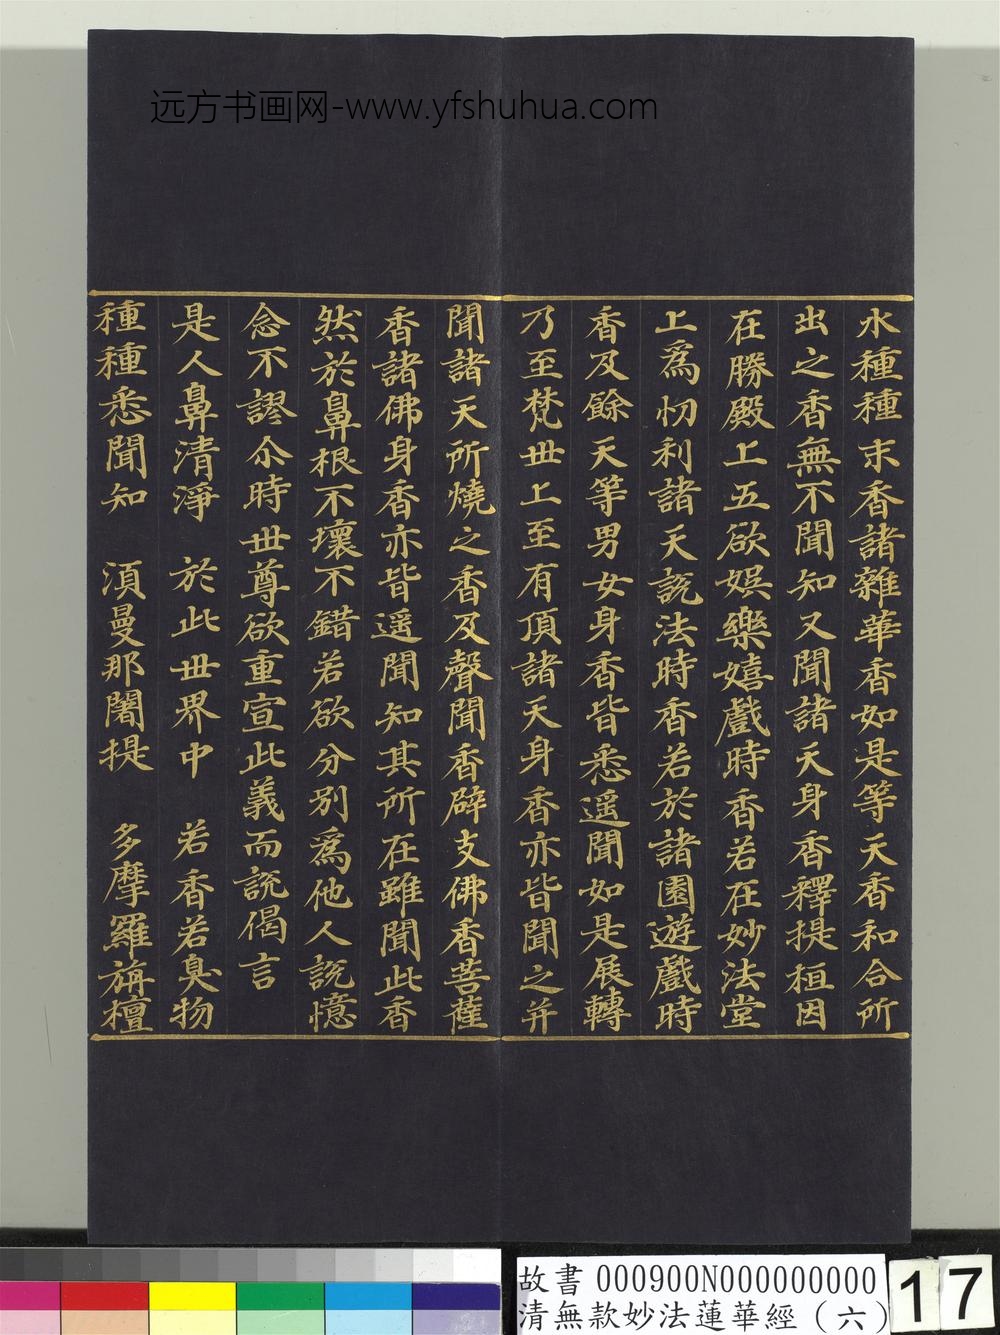 远方书画网-www.yfshuhua.com
水種種末香諸雜華香如是等天香和合所
出之香無不聞知又聞諸天身香釋提桓因
在勝殿上五欲娛樂嬉戲時香若在妙法堂
上為忉利諸天說法時香若於諸園遊戲時
香及餘天等男女身香皆悉遥聞如是展轉
乃至梵世上至有頂諸天身香亦皆聞之并
聞諸天所燒之香及聲聞香辟支佛香菩薩
香諸佛身香亦皆遥聞知其所在雖聞此香
然於鼻根不壞不錯若欲分別為他人說憶
念不謬尒時世尊欲重宣此義而說偈言
是人鼻清淨　於此世界中　若香若臭物
種種悉聞知　須曼那闍提　多摩羅栴檀
故書 000900N000000000
清無款妙法蓮華經（六）
17